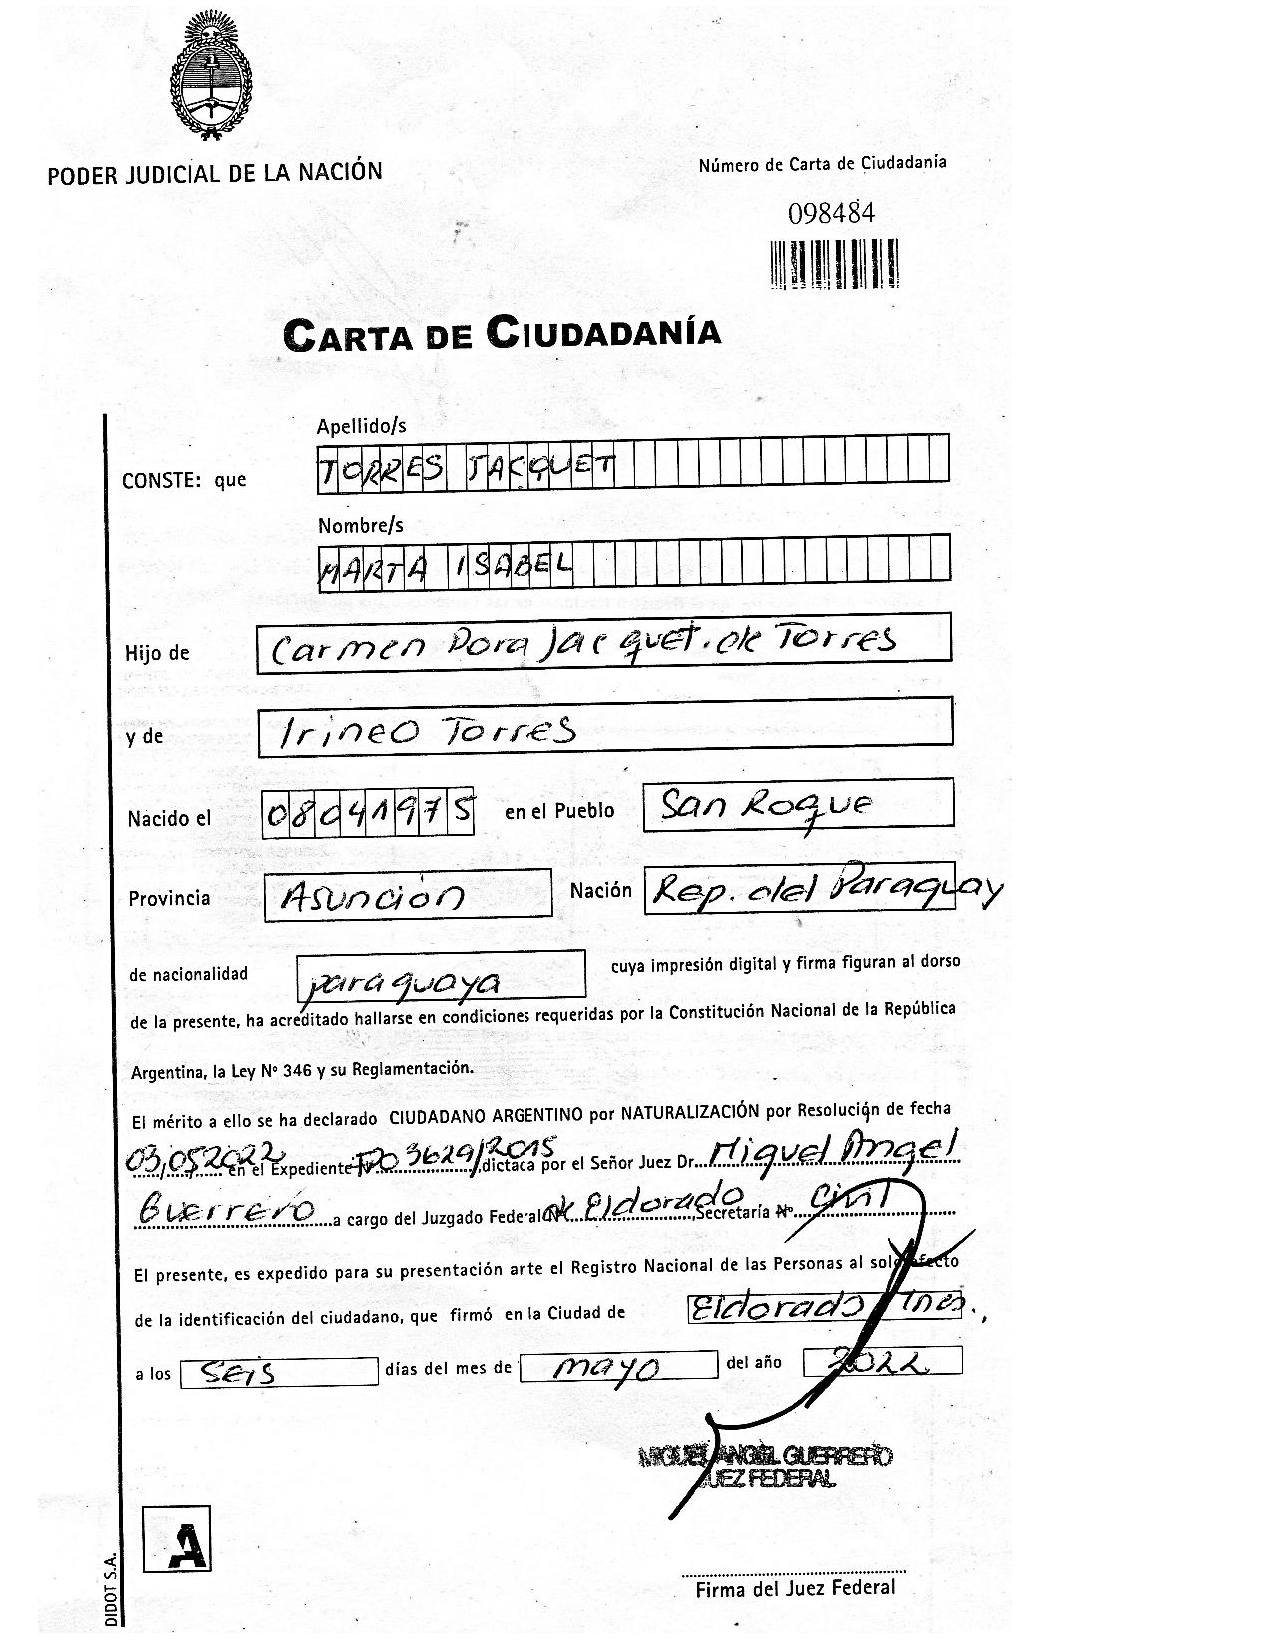 PODER JUDICIAL DE LA NACIÓN
Número de Carta de Ciudadanía
098484
CARTA DE CIUDADANÍA
Apellido/s
CONSTE: que TORRES JACQUET
Nombre/s
MARTA ISABEL
Hijo de Carmen Dora Jacquet de Torres
y de Irineo Torres
Nacido el 08041975 en el Pueblo San Roque
Provincia Asunción Nación Rep. del Paraguay
de nacionalidad paraguaya cuya impresión digital y firma figuran al dorso
de la presente, ha acreditado hallarse en condiciones requeridas por la Constitución Nacional de la República
Argentina, la Ley Nº 346 y su Reglamentación.
El mérito a ello se ha declarado CIUDADANO ARGENTINO por NATURALIZACIÓN por Resolución de fecha
03,05,2022 en el Expediente 3629/2015, dictada por el Señor Juez Dr. Miguel Angel
Guerrero a cargo del Juzgado Federal de Eldorado, Secretaría Nº Civil
El presente, es expedido para su presentación ante el Registro Nacional de las Personas al solo efecto
de la identificación del ciudadano, que firmó en la Ciudad de Eldorado Mnes.,
a los seis días del mes de mayo del año 2022
MIGUEL ANGEL GUERRERO
JUEZ FEDERAL
A
Firma del Juez Federal
DIDOT S.A.